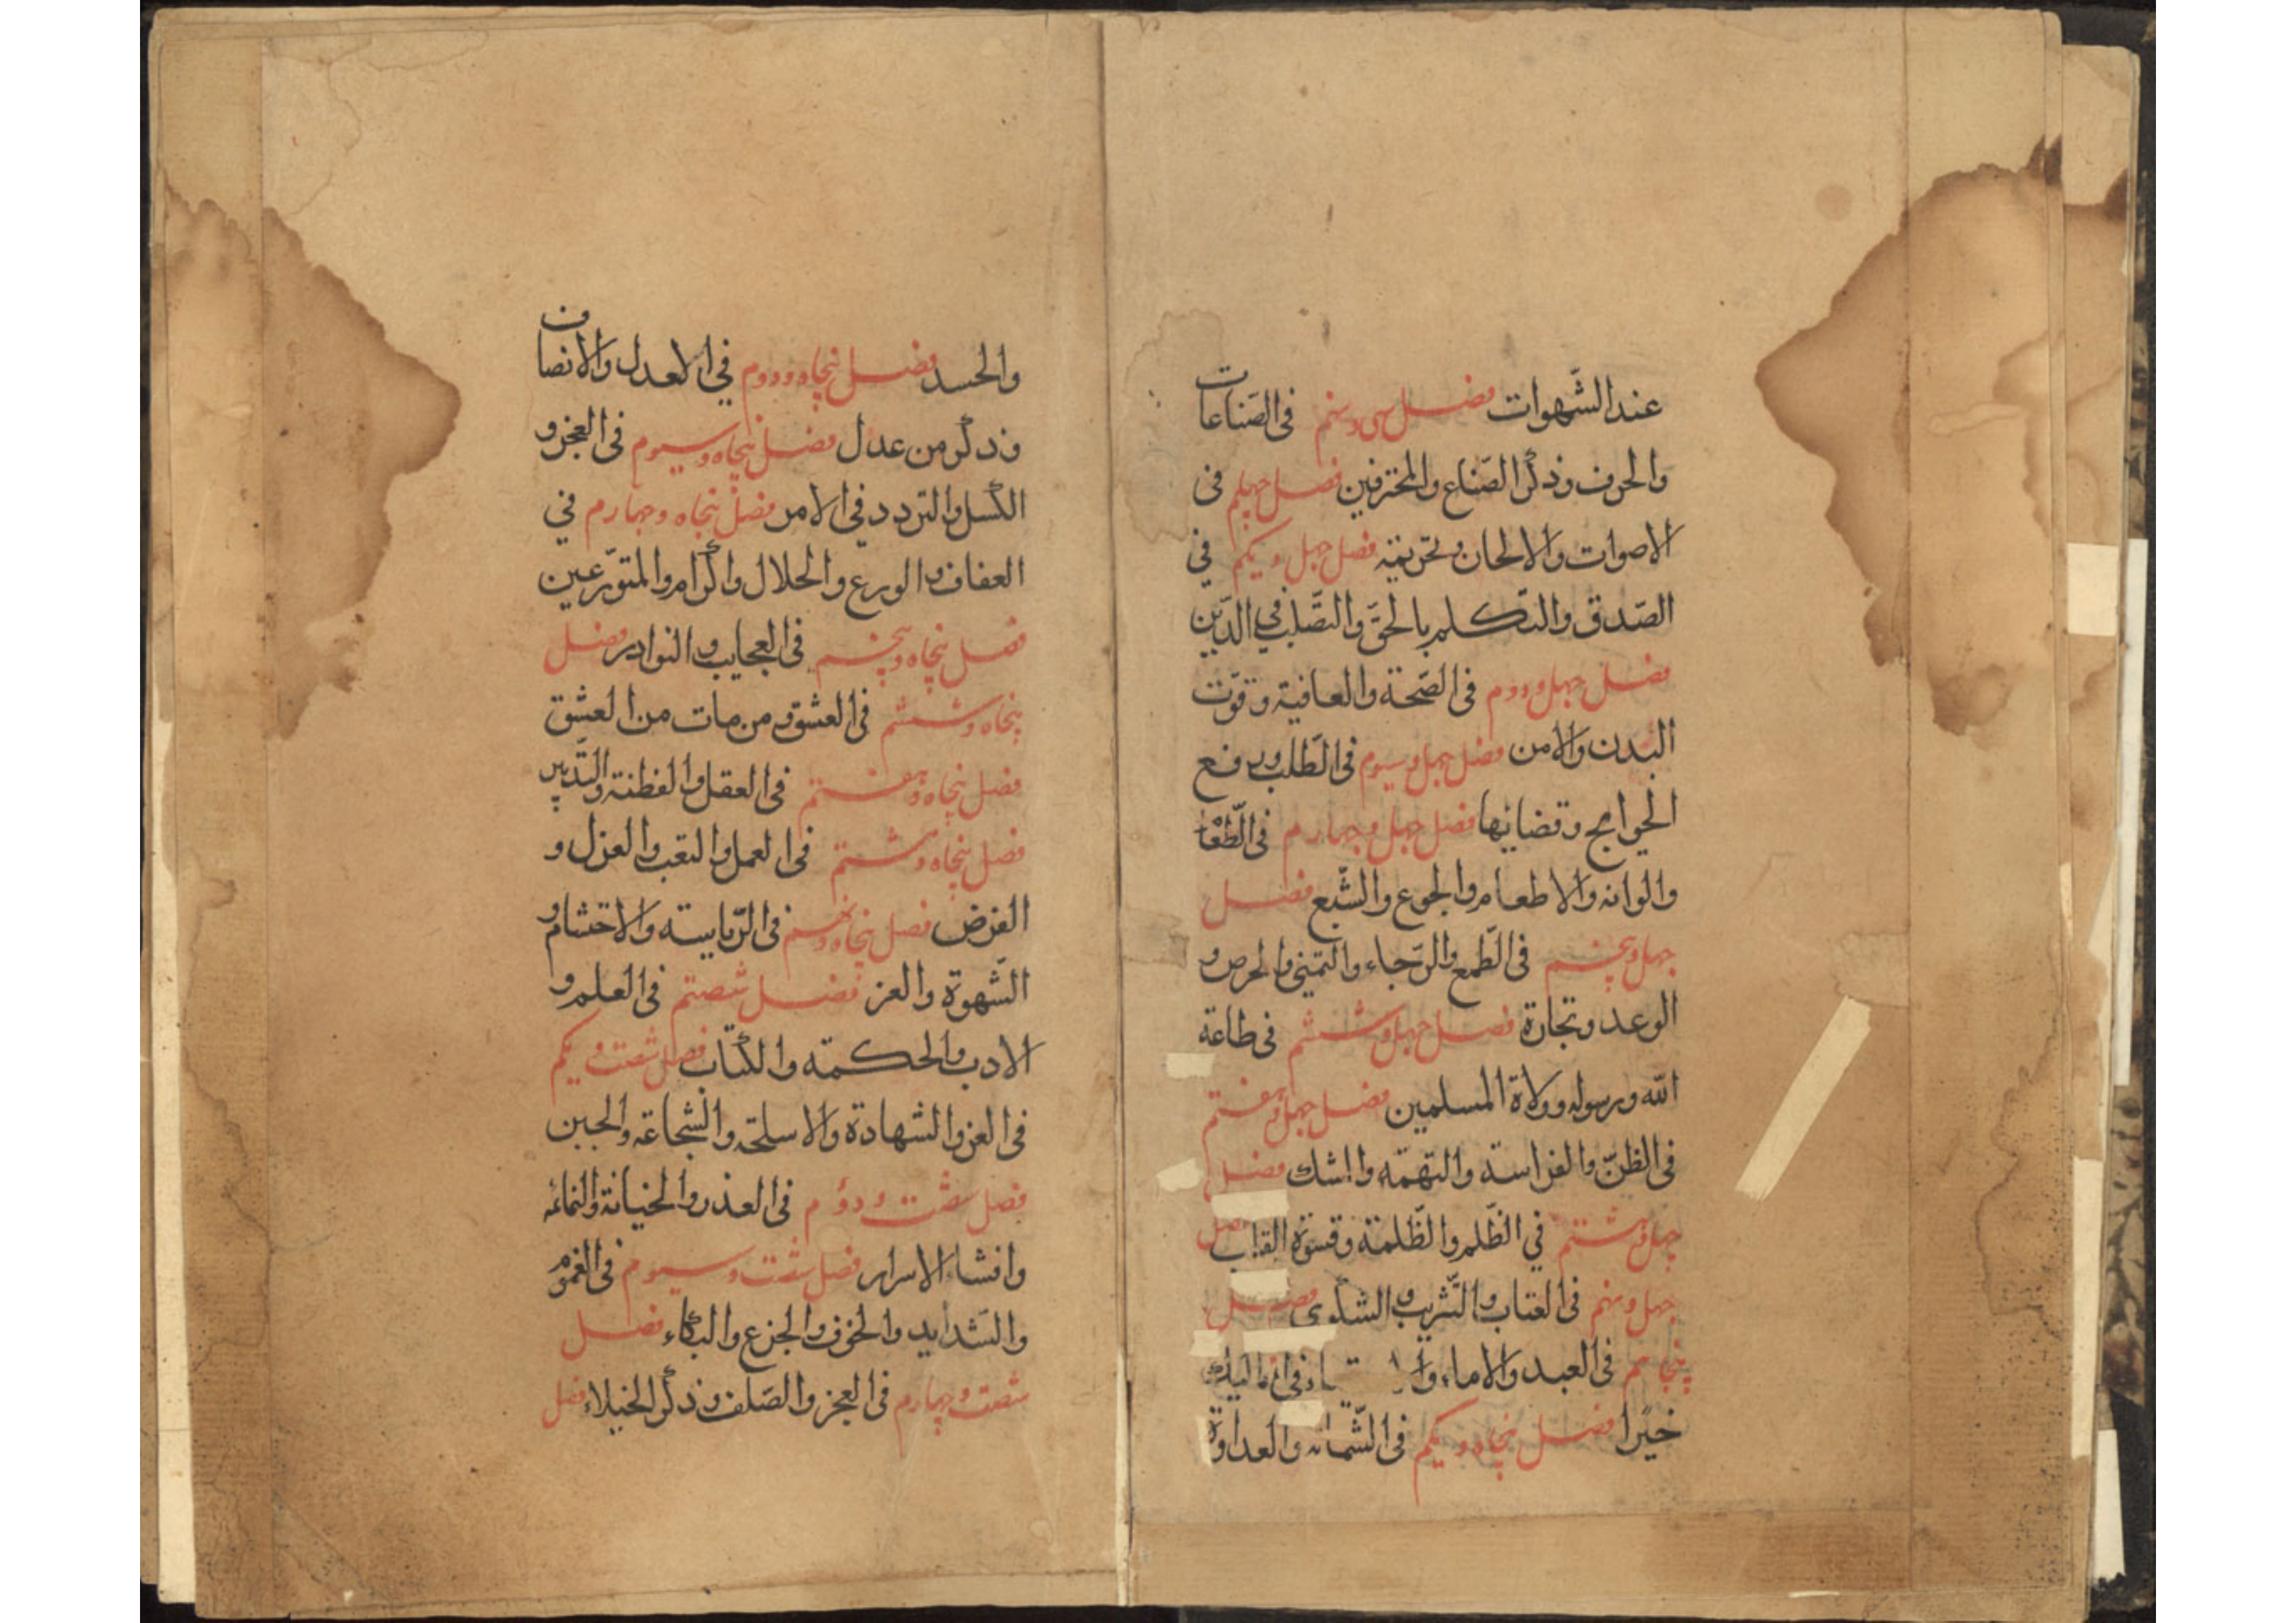 عند الشّهوات فصل سی و نهم فی الصّناعات
والحرف وذکر الصّناع والمحترفین فصل چهلم فی
الاصوات والالحان وتحزینه فصل چهل و یکم فی
الصّدق والتّکلم بالحقّ والتّصلب فی الدّین
فصل چهل و دوم فی الصّحة والعافیة وقوّت
البدن والامن فصل چهل و سیوم فی الطّلب ورفع
الحوایج وقضائها فصل چهل و چهارم فی الطّعا
والوانه والاطعام والجوع والشّبع فصل
چهل و پنجم فی الطّمع والرّجاء والتمنی والحرص و
الوعد وتجارة فصل چهل و ششم فی طاعة
اللّه ورسوله وولاة المسلمین فصل چهل و هفتم
فی الظنّ والفراسة والتهمّه والشك فصل
چهل و هشتم فی الظّلم والظّلمة وقسوة القلب فصل
چهل و نهم فی العتاب والتّثریب والشکوی فصل
پنجاهم فی العبد والاماء
خیرا فصل پنجاه و یکم فی الشّماته والعداوة
والحسد فصل پنجاه و دوم فی الاعدل والانصاف
وذکر من عدل فصل پنجاه و سیوم فی العجز و
الکسل والتردد فی الامر فصل پنجاه و چهارم فی
العفاف والورع والحلال واکرام والمتورّعین
فصل پنجاه و پنجم فی العجایب والنوادر فصل
پنجاه و ششم فی العشق ومن مات من العشق
فصل پنجاه و هفتم فی العقل والفطنة والتّدبیر
فصل پنجاه و هشتم فی العمل والتعب والعزل و
الفرض فصل پنجاه و نهم فی الرّیاسته والاحتشام و
الشّهوة والعز فصل شصتم فی العلم و
الادب والحکمّه والکتاب فصل شصت و یکم
فی العز والشهادة والاسلحّه والشجاعة والجبن
فصل شصت و دؤم فی الغدر والخیانة والنمائمه
وافشاء الاسرار فصل شصت و سیوم فی الغموم
والشّداید والخوف والجزع والبکاء فصل
شصت و چهارم فی العجز والصّلف وذکر الخیلاء فصل